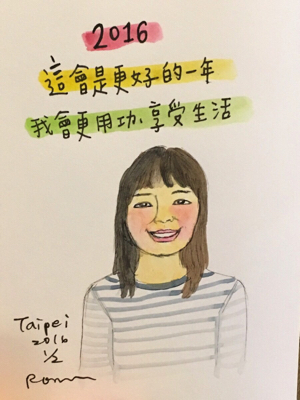 2016
這會是更好的一年
我會更用功、享受生活
Taipei
2016
1/2